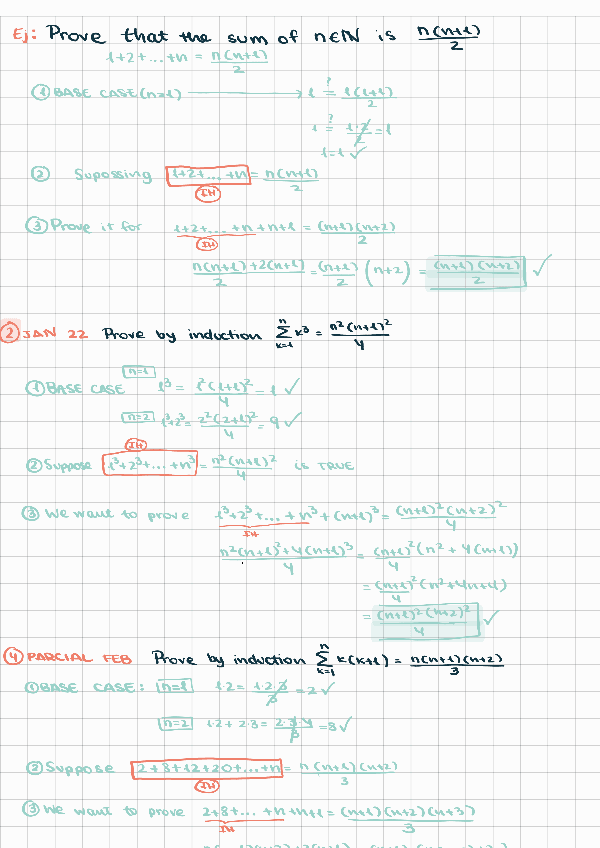 Ej: Prove that the sum of n∈ℕ is n(n+1)/2
1+2+...+n = n(n+1)/2
① BASE CASE (n=1) → 1 ≟ 1(1+1)/2
1 ≟ 1·2/2 = 1
1=1 ✓
② Supossing 1+2+...+n = n(n+1)/2
IH
③ Prove it for 1+2+...+n+n+1 = (n+1)(n+2)/2
IH
n(n+1)+2(n+1)/2 = (n+1)/2 (n+2) = (n+1)(n+2)/2 ✓
② JAN 22 Prove by induction ∑_{k=1}^{n} k³ = n²(n+1)²/4
n=1
① BASE CASE 1³ = 1²(1+1)²/4 = 1 ✓
n=2 1³+2³ = 2²(2+1)²/4 = 9 ✓
IH
② Suppose 1³+2³+...+n³ = n²(n+1)²/4 is TRUE
③ We want to prove 1³+2³+...+n³+(n+1)³ = (n+1)²(n+2)²/4
IH
n²(n+1)²+4(n+1)³/4 = (n+1)²/4 (n²+4(n+1))
= (n+1)²/4 (n²+4n+4)
= (n+1)²(n+2)²/4 ✓
④ PARCIAL FEB Prove by induction ∑_{k=1}^{n} k(k+1) = n(n+1)(n+2)/3
① BASE CASE: n=1 1·2 = 1·2·3/3 = 2 ✓
n=2 1·2+2·3 = 2·3·4/3 = 8 ✓
② Suppose 2+8+12+20+...+n = n(n+1)(n+2)/3
IH
③ We want to prove 2+8+...+n+n+1 = (n+1)(n+2)(n+3)/3
IH